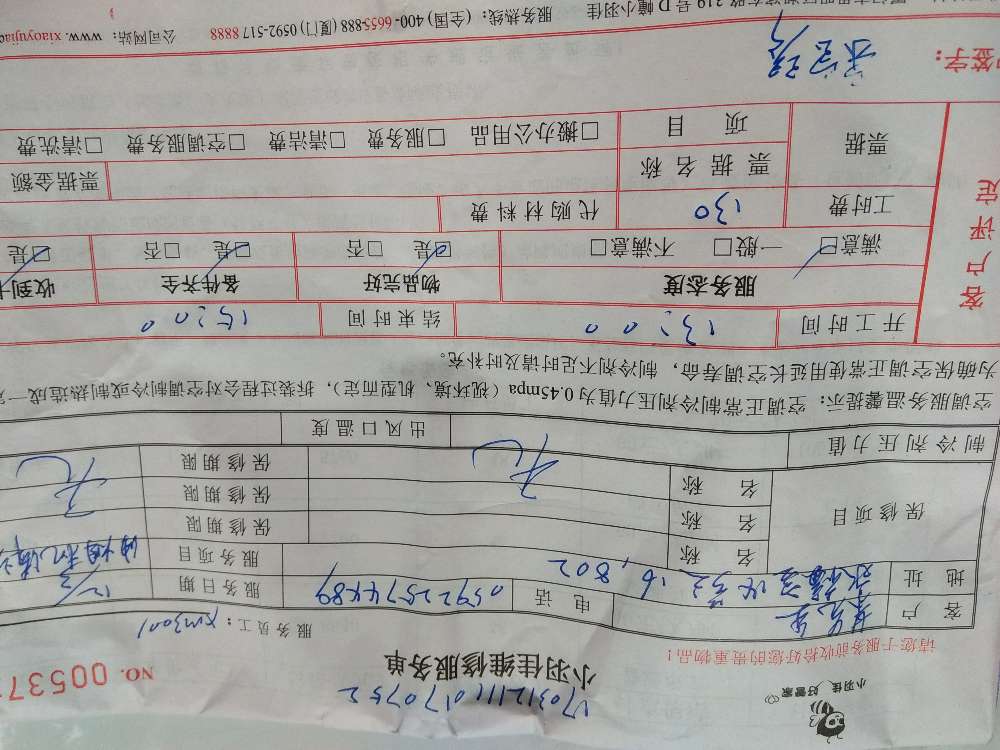 小羽佳 好管家
1703121110170752
小羽佳维修服务单
NO. 00537
请您于服务前收拾好您的贵重物品！
服务员工：xm3001
客户
电话 05922574489
服务日期 12/3
地址 16,802
服务项目
保修项目
名称
保修期限
名称
保修期限
名称 无
保修期限 无
制冷剂压力值
出风口温度
空调服务温馨提示：空调正常制冷剂压力值为0.45mpa（视环境、机型而定），拆装过程会对空调制冷或制热造成一
为确保空调正常使用延长空调寿命，制冷剂不足时请及时补充。
客户评定
开工时间 13:00
结束时间 15:00
服务态度
物品完好
备件齐全
收到
满意☑ 一般□ 不满意□
☑是 □否
☑是 □否
☑是
工时费 130
代购材料费
票据
票据名称
票据金额
项目
□搬办公用品 □服务费 □清洁费 □空调服务费 □清洗费
签字：
D幢 小羽佳 服务热线：(全国) 400-6655-888 (厦门) 0592-517 8888 公司网站：www. xiaoyujia